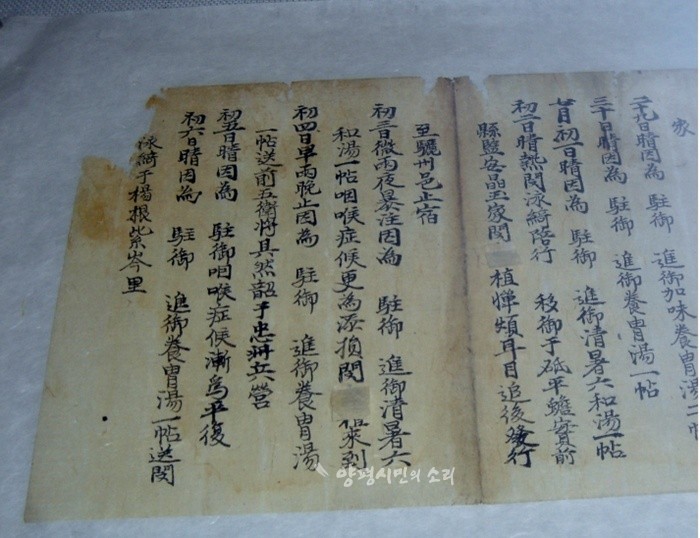 家
二十九日晴因為 駐御 進御加味養胃湯一帖
三十日晴因為 駐御 進御養胃湯一帖
七月初一日晴因為 駐御 進御清暑六和湯一帖
初二日晴熱閔泳綺陪行 移御于砥平蟾實前
縣監安晶玉家閔 植憚煩耳目追後發行
至驪州邑止宿
初三日微雨夜暴注因為 駐御 進御清暑六
和湯一帖咽喉症候更為添損閔 來到
初四日早雨晚止因為 駐御 進御養胃湯
一帖送前五衛將具然韶于忠州兵營
初五日晴因為 駐御咽喉症候漸為平復
初六日晴因為 駐御 進御養胃湯一帖送閔
泳綺于楊根紫岑里
양평시민의 소리